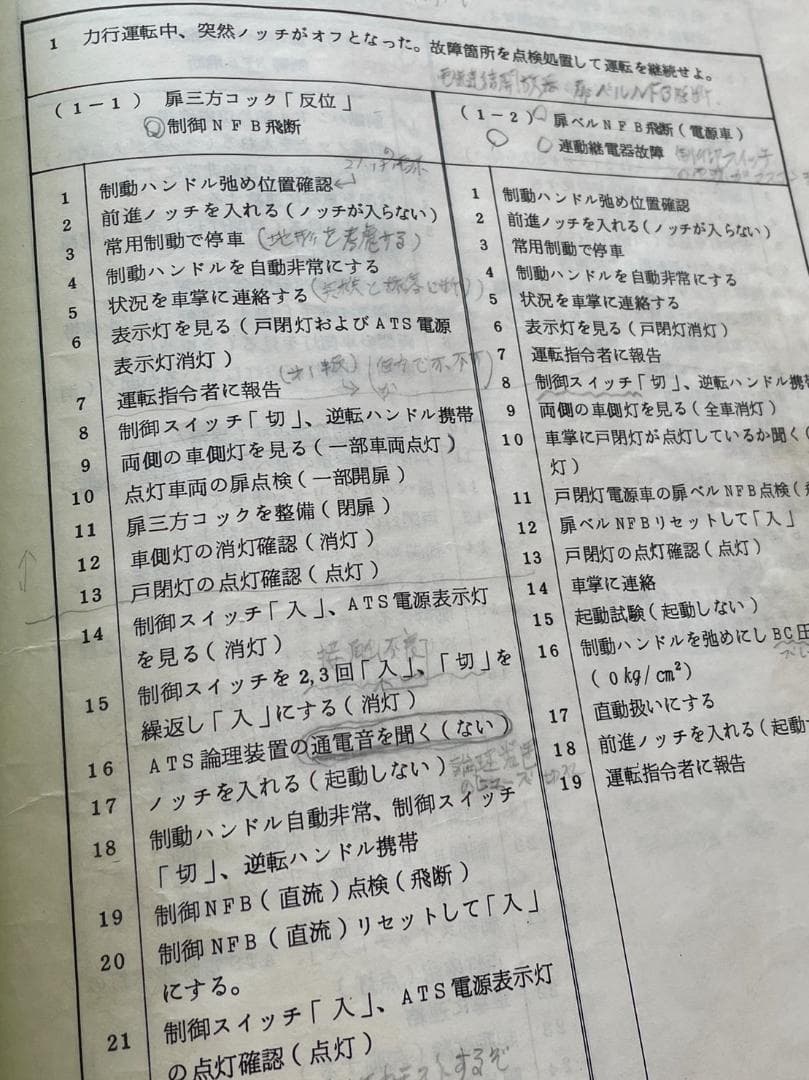 1 力行運転中、突然ノッチがオフとなった。故障箇所を点検処置して運転を継続せよ。
(1-1) 扉三方コック「反位」
制御NFB飛断
1 制動ハンドル弛め位置確認
2 前進ノッチを入れる(ノッチが入らない)
3 常用制動で停車(地形を考慮する)
4 制動ハンドルを自動非常にする
5 状況を車掌に連絡する
6 表示灯を見る(戸閉灯およびATS電源
表示灯消灯)
7 運転指令者に報告
8 制御スイッチ「切」、逆転ハンドル携帯
9 両側の車側灯を見る(一部車両点灯)
10 点灯車両の扉点検(一部開扉)
11 扉三方コックを整備(閉扉)
12 車側灯の消灯確認(消灯)
13 戸閉灯の点灯確認(点灯)
14 制御スイッチ「入」、ATS電源表示灯
を見る(消灯)
接触不良
15 制御スイッチを2,3回「入」、「切」を
繰返し「入」にする(消灯)
16 ATS論理装置の通電音を聞く(ない)
17 ノッチを入れる(起動しない)
論理装置
のヒューズ切れ
18 制動ハンドル自動非常、制御スイッチ
「切」、逆転ハンドル携帯
19 制御NFB(直流)点検(飛断)
20 制御NFB(直流)リセットして「入」
にする。
21 制御スイッチ「入」、ATS電源表示灯
の点灯確認(点灯)
(1-2) 扉ベルNFB飛断(電源車)
連動継電器故障
1 制動ハンドル弛め位置確認
2 前進ノッチを入れる(ノッチが入らない)
3 常用制動で停車
4 制動ハンドルを自動非常にする
5 状況を車掌に連絡する
6 表示灯を見る(戸閉灯消灯)
7 運転指令者に報告
8 制御スイッチ「切」、逆転ハンドル携
9 両側の車側灯を見る(全車消灯)
10 車掌に戸閉灯が点灯しているか聞く(
灯)
11 戸閉灯電源車の扉ベルNFB点検(
12 扉ベルNFBリセットして「入」
13 戸閉灯の点灯確認(点灯)
14 車掌に連絡
15 起動試験(起動しない)
16 制動ハンドルを弛めにしBC圧
(0kg/cm²)
17 直動扱いにする
18 前進ノッチを入れる(起動
19 運転指令者に報告